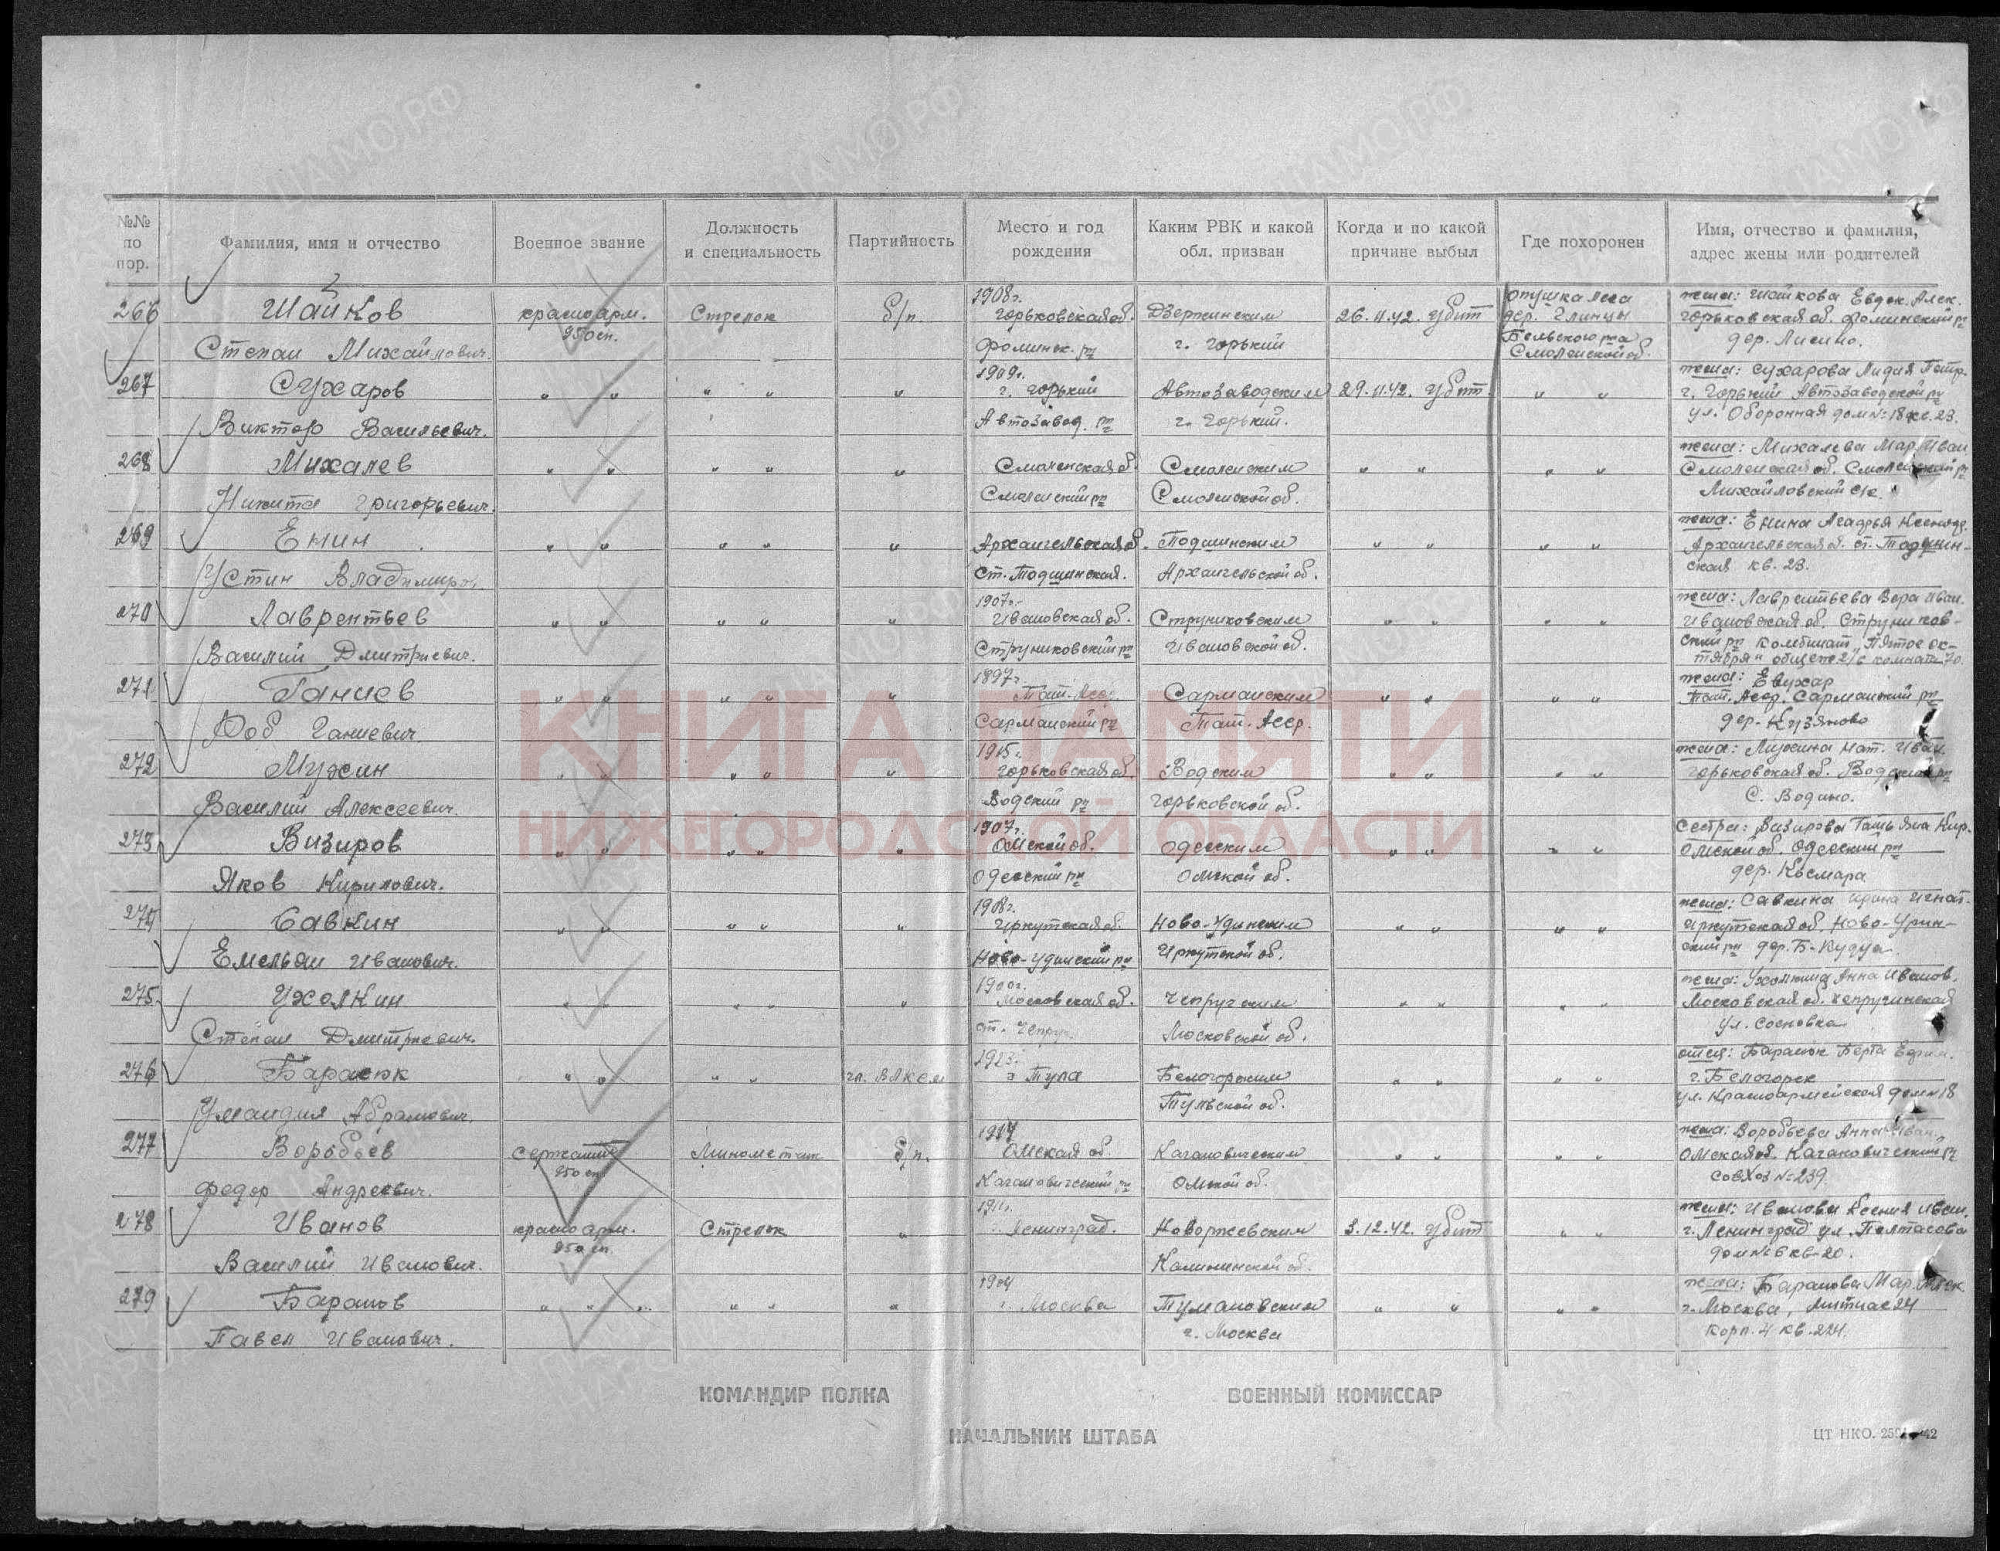 №№ по пор.
Фамилия, имя и отчество
Военное звание
Должность и специальность
Партийность
Место и год рождения
Каким РВК и какой обл. призван
Когда и по какой причине выбыл
Где похоронен
Имя, отчество и фамилия, адрес жены или родителей
266 Шайков красноарм. Стрелок б/п. 1908г. Горьковская об. Дзержинским 26.11.42. убит опушка леса дер. Глинцы жена: Шайкова Евдок. Алек. Горьковская об. Фоминский рн
Степан Михайлович. 950 сп. Фоминск. рн г. Горький Бельского р-на Смоленской об. дер. Лисино.
267 Сухаров " " " " " 1909г. г. Горький Автозаводским 29.11.42. убит. " " жена: Сухарова Лидия Петр. г. Горький Автозаводской рн
Виктор Васильевич. Автозавод. рн г. Горький. ул. Оборонная дом № 18 кв. 23.
268 Михалев " " " " " Смоленская об. Смоленским " " " " жена: Михалева Мар. Иван Смоленская об. Смоленский рн
Никита Григорьевич. Смоленский рн Смоленской об. Михайловский с/с.
269 Енин " " " " " Архангельская об. " " " " жена: Енина
Устин Владимиро. Архангельской об. кв. 23.
270 Лаврентьев " " " " " 1907г. Ивановская об. Струниковским " " " " жена: Лаврентьева Вера Иван. Ивановская об. Струников-
Василий Дмитриевич. Струниковский рн Ивановской об. ский рн комбинат "Пятое ок-тября" общеж 2/6 комната 70.
271 Ганиев " " " " " 1897г. Тат. Асср. Сармановским " " " " жена: Евухар Тат. Асср. Сармановский рн
Юоб Ганиевич Сармановский рн Тат. Асср. дер. Кузяково
272 Мужин " " " " " 1915г. Горьковская об. Водским " " " " жена: Мужина Нат. Иван. Горьковская об. Водский рн
Василий Алексеевич. Водский рн Горьковской об. с. Водино.
273 Визиров " " " " " 1907г. Омской об. Одесским " " " " сестра: Визирова Татьяна Кир. Омской об. Одесский рн
Яков Кирилович. Одесский рн Омской об. дер. Квемара
274 Савкин " " " " " 1908г. Иркутская об. Ново-Удинским " " " " жена: Савкина Ирина Игнат. Иркутская об. Ново-Удин-
Емельян Иванович. Ново-Удинский рн Иркутской об. ский рн дер. Б-Кудуя
275. Ухолкин " " " " " 1900г. Московская об. " " " " жена: Ухолкина Анна Иванов. Московская об.
Степан Дмитриевич. Московской об. ул. Сосновка
276 Барасюк " " " " чл. ВЛКСМ 1923г. г. Тула Белогорским " " " " Берта Ефим. г. Белогорск
Абрамович. Тульской об. ул. Красноармейская дом №18
277 Воробьев сержант Минометчик б/п. Омская об. Кагановическим " " " " жена: Воробьева Анна Иван. Омская об. Кагановический рн
Федор Андреевич. 950 сп Кагановический рн Омской об. Совхоз № 239.
278 Иванов красноарм. Стрелок " Ленинград. Новоржевским 3.12.42. убит " " жена: Иванова Ксения Иван. г. Ленинград ул. Полтасова
Василий Иванович. 950 сп. Калининской об. дом № 6 кв-20.
279 Баранов " " " " " " 1904 г. Москва Тумановским " " " " жена: Баранова Мар. г. Москва,
Павел Иванович. г. Москва корп. 4 кв. 224.
КОМАНДИР ПОЛКА
ВОЕННЫЙ КОМИССАР
НАЧАЛЬНИК ШТАБА
ЦТ НКО.
КНИГА ПАМЯТИ
НИЖЕГОРОДСКОЙ ОБЛАСТИ
ЦАМО.РФ